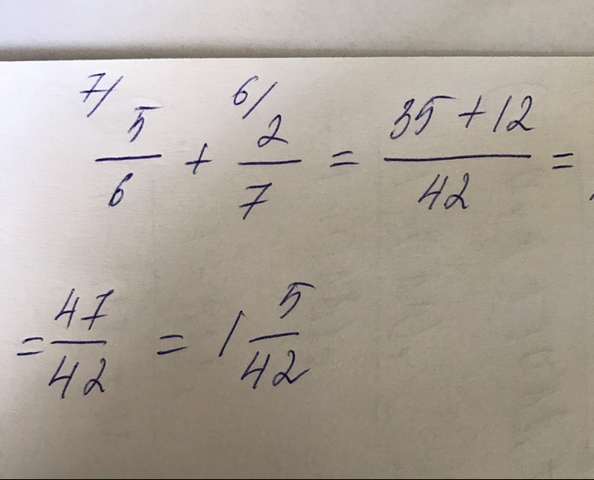 7/ 5/6 + 6/ 2/7 = (35 + 12)/42 =
= 47/42 = 1 5/42